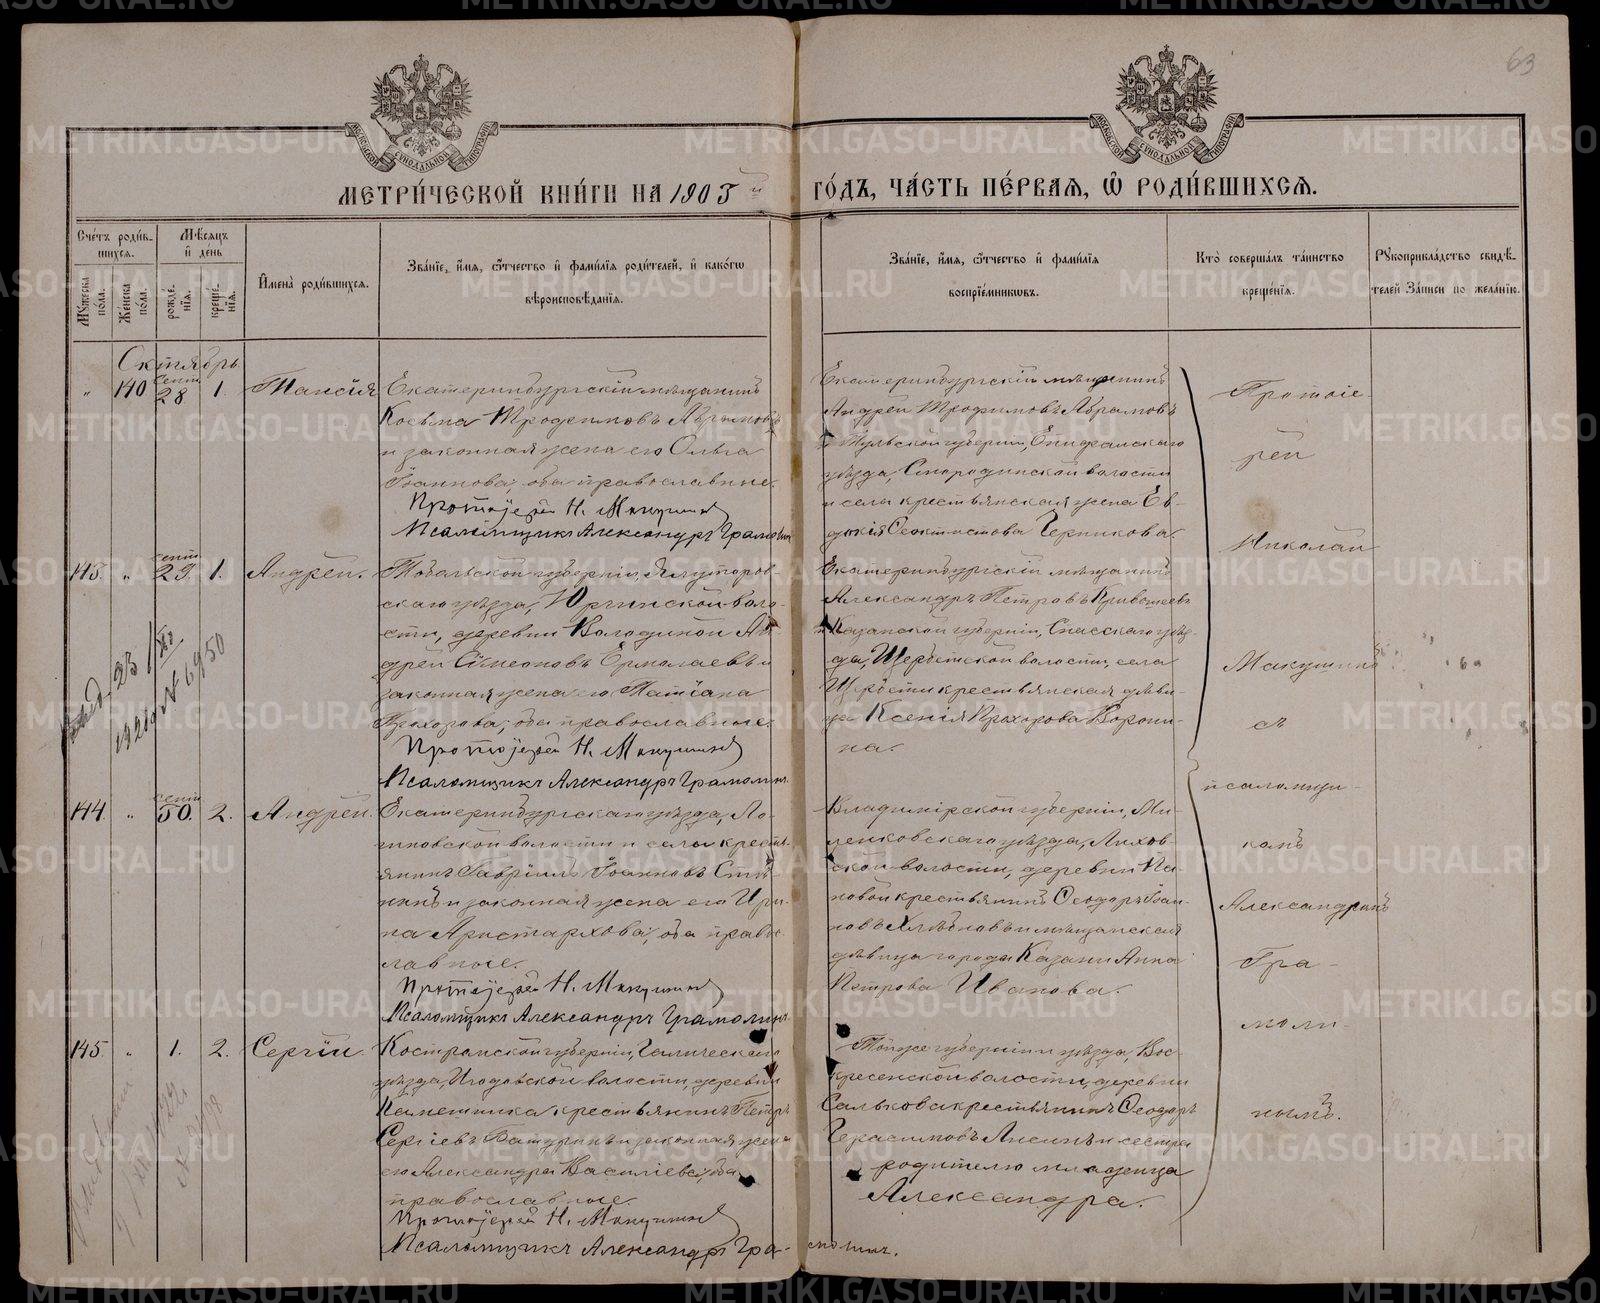 63
МЕТРИ́ЧЕСКОЙ КНИ́ГИ НА 1903 й ГО́ДЪ, ЧА́СТЬ ПЕ́РВАЯ, Ѡ РОДИ́ВШИХСЯ.
Сче́тъ роди́вшихся.
Мѣ́сяцъ и҆ де́нь
Мꙋ́жеска по́ла.
Же́нска по́ла.
рожде́нїя.
креще́нїя.
И҆мена̀ роди́вшихся.
Зва́нїе, и҆́мя, ѻ҆́тчество и҆ фами́лїя роди́телей, и҆ како́гѡ
вѣроисповѣ́данїя.
Зва́нїе, и҆́мя, ѻ҆́тчество и҆ фами́лїя
воспрїе́мникѡвъ.
Кто̀ соверша́лъ та́инство
креще́нїя.
Рꙋкоприкла́дство свидѣ́-
телей за́писи по жела́нїю.
Октябрь
" 140 Сент. 28 1. Таисія
Екатеринбургскій мѣщанинъ
Косьма Трофимовъ Абрамовъ
и законная жена его Ольга
Іоаннова, оба православные.
Протоіерей Н. Макушинъ
Псаломщикъ Александръ Грамолинъ
Екатеринбургскій мѣщанинъ
Андрей Трофимовъ Абрамовъ
и Тульской губерніи, Епифанскаго
уѣзда, Смородинской волости
и села крестьянская жена Ев-
докія Ѳеоктистова Черникова.
143. " сент. 29. 1. Андрей.
Тобольской губерніи, Ялуторов-
скаго уѣзда, Юргинской воло-
сти, деревни Володиной Ан-
дрей Симеоновъ Ермолаевъ и
законная жена его Татіана
Прохорова, оба православные.
Протоіерей Н. Макушинъ
Псаломщикъ Александръ Грамолинъ
Екатеринбургскій мѣщанинъ
Александръ Петровъ
и Казанской губерніи, Спасскаго уѣз-
да, Щербетской волости, села
Щербети крестьянская дѣви-
ца Ксенія Прохорова Ворони-
на.
23/XII
1926 г № 6950
144. " сент. 30. 2. Андрей.
Екатеринбургскаго уѣзда, Ло-
гиновской волости и села кресть-
янинъ Гавріилъ Іоанновъ
и законная жена его Ири-
на Аристархова, оба право-
славные.
Протоіерей Н. Макушинъ
Псаломщикъ Александръ Грамолинъ
Владимірской губерніи, Ме-
ленковскаго уѣзда, Ляхов-
ской волости, деревни Па-
новой крестьянинъ Ѳеодоръ Іоан-
новъ Хлѣбновъ и мѣщанская
дѣвица города Казани Анна
Петрова Иванова.
145. " 1. 2. Сергій.
Костромской губерніи, Галическаго
уѣзда, Игодовской волости, деревни
крестьянинъ Петръ
Сергіевъ Батуринъ и законная жена
его Александра Василіева, оба
православные.
Протоіерей Н. Макушинъ
Псаломщикъ Александръ Гра-молинъ.
Той же губерніи и уѣзда, Вос-
кресенской волости, деревни
Салькова крестьянинъ Ѳеодоръ
Герасимовъ Лисинъ и сестра
родителю младенца
Александра.
Протоіе-
рей
Николай
Макушинъ
съ
псаломщи-
комъ
Александромъ
Гра-
моли-
нымъ.
METRIKI.GASO-URAL.RU